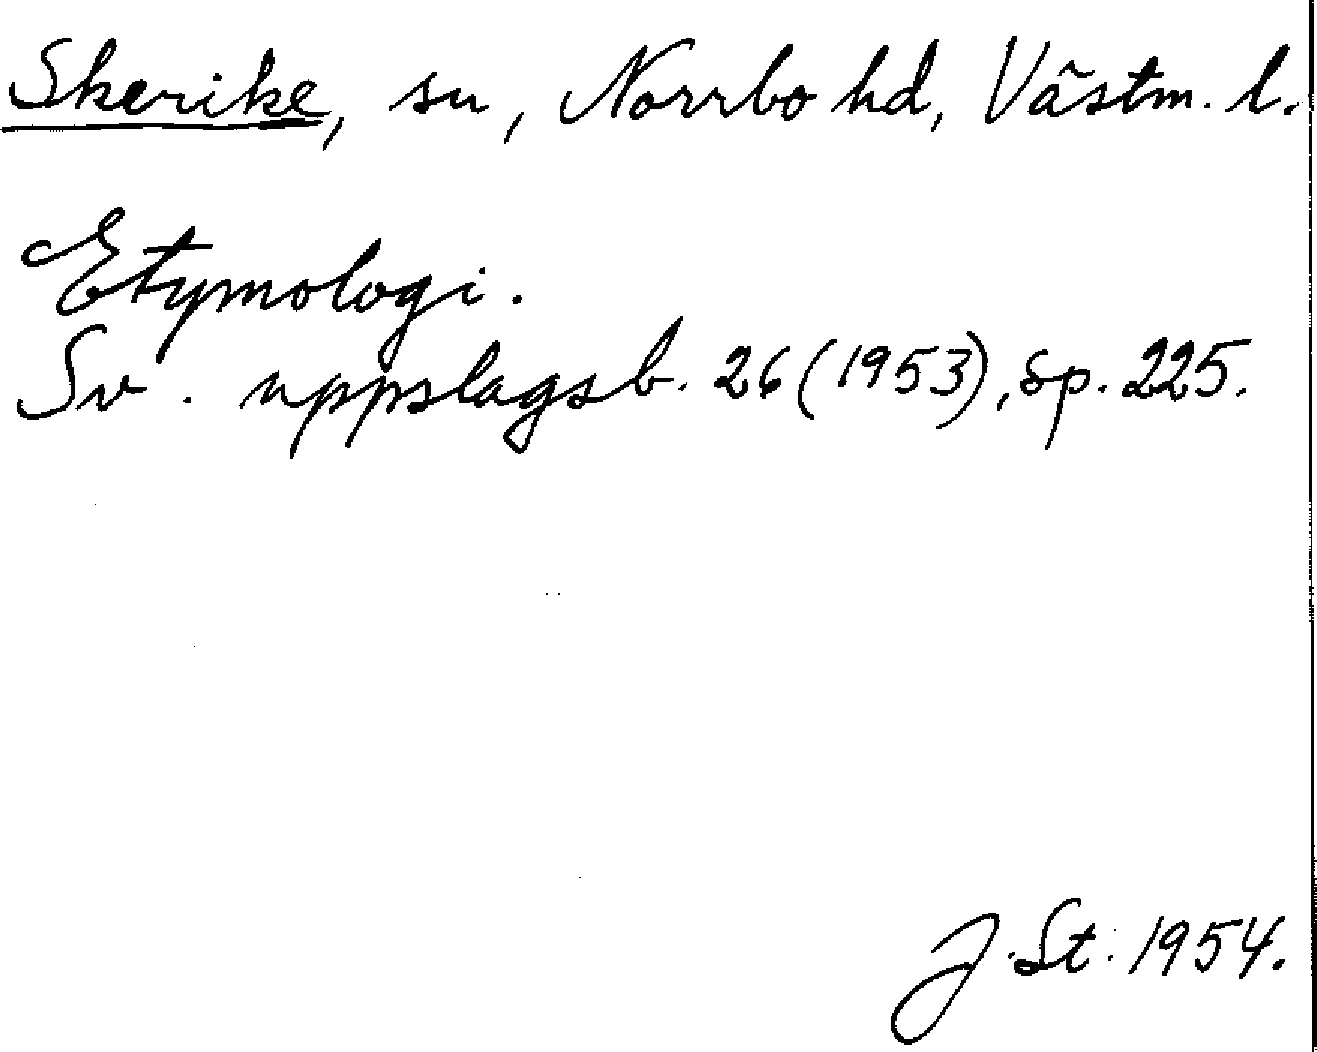 Skerike, sn, Norrbo hd, Västm. l.
Etymologi.
Sv. uppslagsb. 26 (1953), sp. 225.
J. St. 1954.